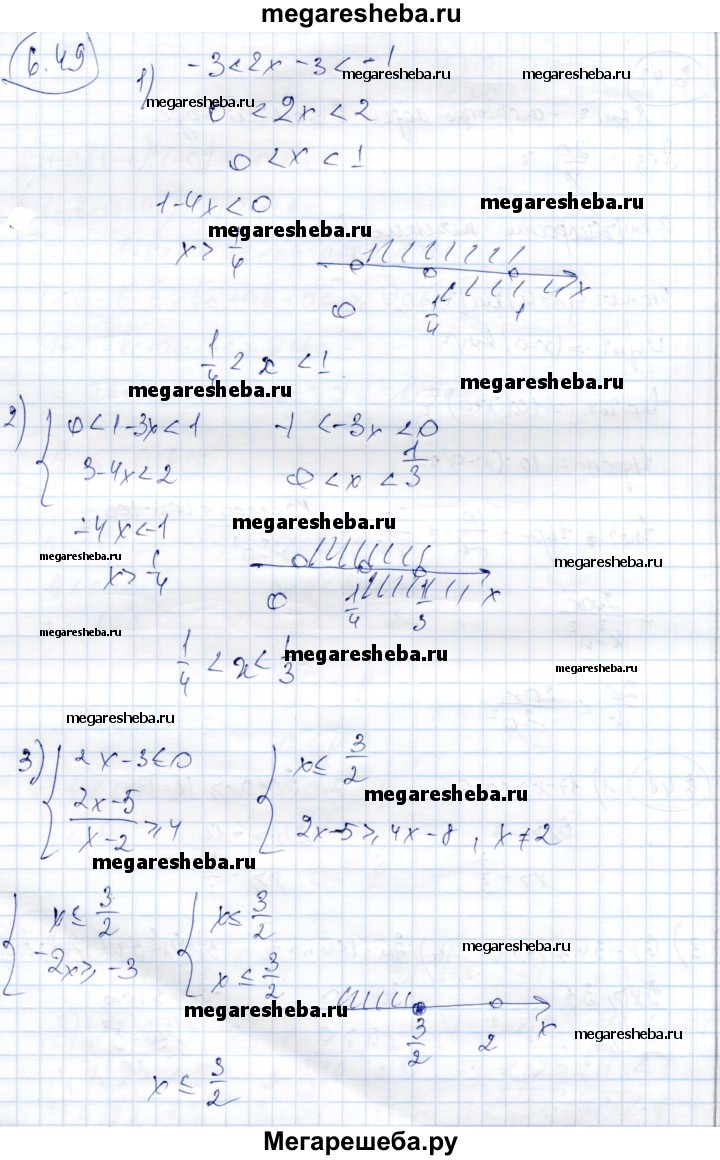 megaresheba.ru
6.49
1) -3<2x-3<-1
megaresheba.ru
megaresheba.ru
megaresheba.ru
0<2x<2
0<x<1
1-4x<0
megaresheba.ru
megaresheba.ru
x>1/4
0 1/4 1 x
1/4<x<1
megaresheba.ru
megaresheba.ru
2) { 0<1-3x<1 -1<-3x<0
3-4x<2 0<x<1/3
-4x<-1
megaresheba.ru
megaresheba.ru
megaresheba.ru
x>1/4
0 1/4 1/3 x
megaresheba.ru
1/4<x<1/3
megaresheba.ru
megaresheba.ru
megaresheba.ru
3) { 2x-3≤0 { x≤3/2
megaresheba.ru
(2x-5)/(x-2)≥4 2x-5≥4x-8, x≠2
megaresheba.ru
{ x≤3/2 { x≤3/2
megaresheba.ru
-2x≥-3 x≤3/2
megaresheba.ru
megaresheba.ru
3/2 2 x
x≤3/2
Мегарешеба.ру